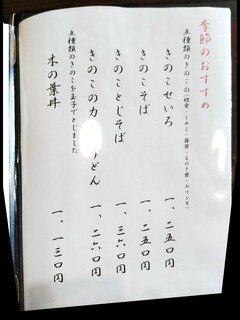 季節のおすすめ
五種類のきのこの(椎茸・しめじ・舞茸・えのき茸・エリンギ)
きのこせいろ 一、二五〇円
きのこそば 一、二五〇円
きのことじそば 一、三六〇円
きのこの力うどん 一、二六〇円
五種類のきのこを玉子でとじました
木の葉丼 一、一三〇円